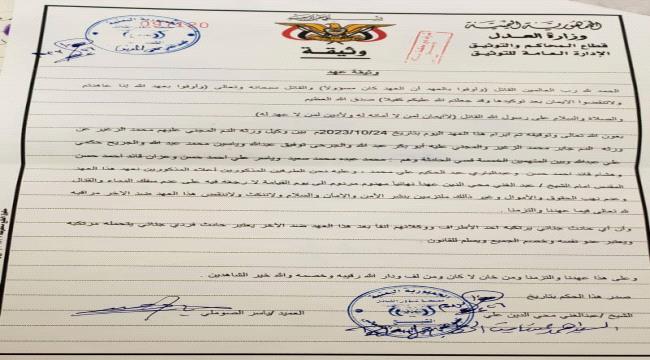 الجمهورية اليمنية
وزارة العدل
قطاع المحاكم والتوثيق
الإدارة العامة للتوثيق
وثيقة
وثيقة عهد
الحمد لله رب العالمين القائل (وأوفوا بالعهد أن العهد كان مسؤولا) والقائل سبحانه وتعالى (وأوفوا بعهد الله إذا عاهدتم
ولاتنقضوا الايمان بعد توكيدها وقد جعلتم الله عليكم كفيلا) صدق الله العظيم
والصلاة والسلام على رسول الله القائل (لاايمان لمن لا أمانه له ولادين لمن لا عهد له)
بعون الله وتعالى وتوفيقه تم ابرام هذا العهد اليوم بتاريخ 2023/10/24م بين وكيل ورثه الدم المجني عليهم محمد الزغير عن
ورثه الدم جابر محمد الزغير والمجني عليه أبو بكر عبد الله والجرحى توفيق عبدالله وياسين محمد عبد الله والجريح حكمي
علي عبدالله وبين المتهمين الخمسة في الحادثة وهم : محمد عبده محمد سعيد وياسر علي احمد حسن وعزان قائد احمد حسن
وهشام قائد احمد حسن وعبدالباري عبد الحكيم علي محمد . وعليه نحن الطرفين المذكورين أعلاه المذكورين نعاهد بهذا العهد
المقدس امام الشيخ / عبد الغني محي الدين عهداً نهائياً مهدوم مردوم الى يوم القيامة لا رجعه فيه على عدم سفك الدماء والقتال
وعدم نهب الحقوق والأموال وغير ذالك ملتزمين بنشر الأمن والامان والسلام ولاننكث ولاننقض هذا العهد ضد الاخر مراقبه
لله تعالى فيما عهدنا والتزمنا .
وأن أي حادث جنائي يرتكبه احد الأطراف ووكلائهم انفا بعد هذا العهد ضد الأخر يعتبر حادث فردي جنائي يتحمله مرتكبه
ويعتبر عدو نفسه وخصم الجميع ويسلم للقانون .
وعلى هذا عهدنا والتزمنا ومن خان لا كان ومن لف ودار الله رقيبه وخصمه والله خير الشاهدين .
صدر هذا الحكم بتاريخ
الشيخ /عبدالغني محي الدين علي
العميد /ياسر الصوملي